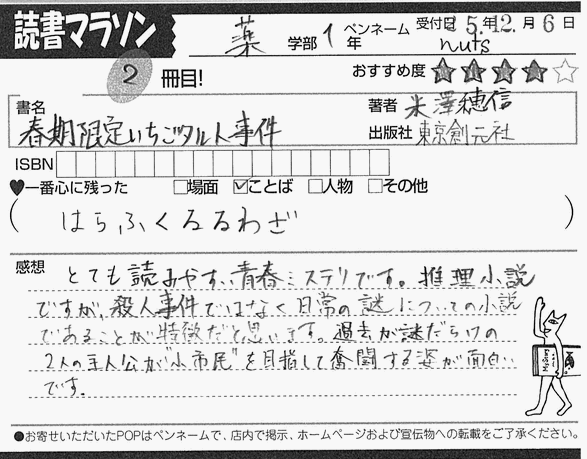 読書マラソン
薬 学部 1 年 ペンネーム nuts 受付日 5.年 12.月 6日
2 冊目!
おすすめ度 ★★★★☆
書名 春期限定いちごタルト事件
著者 米澤穂信
出版社 東京創元社
ISBN
♥一番心に残った □場面 ☑ことば □人物 □その他
( はらふくるるわざ )
感想 とても読みやすい青春ミステリです。推理小説
ですが、殺人事件ではなく日常の謎についての小説
であることが特徴だと思います。過去が謎だらけの
2人の主人公が"小市民"を目指して奮闘する姿が面白い
です。
●お寄せいただいたPOPはペンネームで、店内で掲示、ホームページおよび宣伝物への転載をご了承ください。